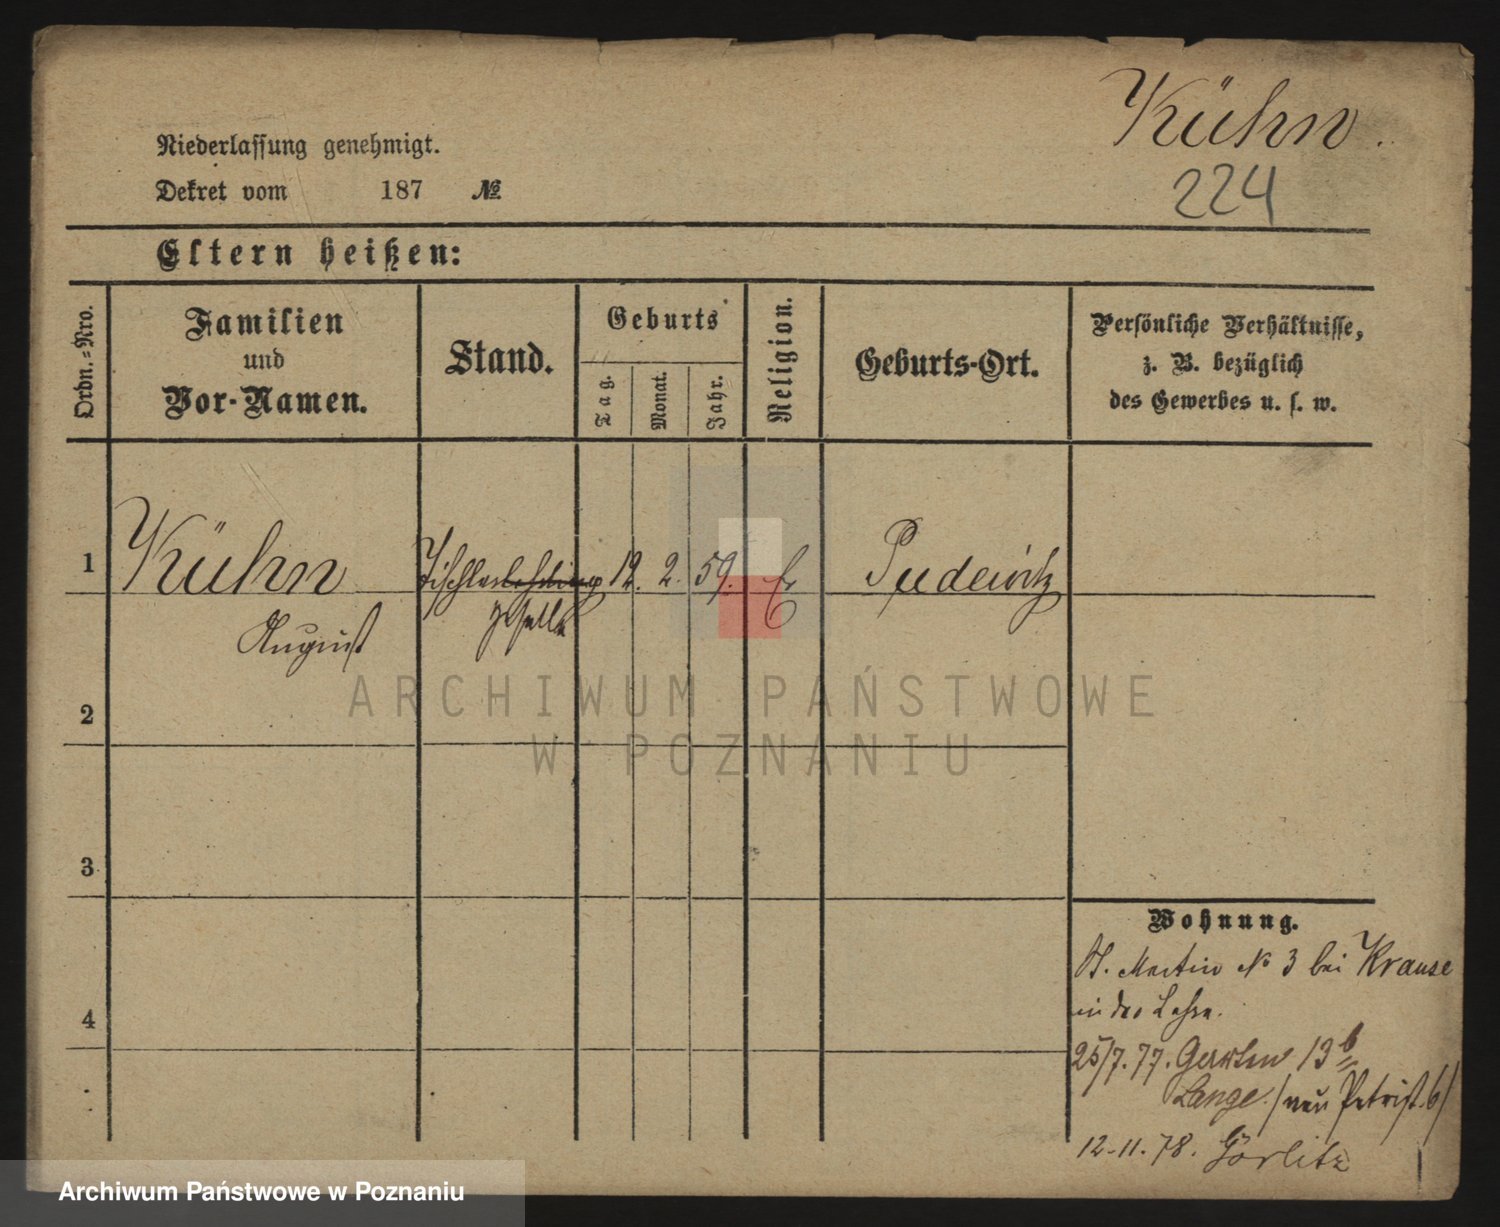 Kühn.
224
Niederlassung genehmigt.
Dekret vom 187 №
Eltern heißen:
Ordn.-Nro.
Familien
und
Vor-Namen.
Stand.
Geburts
Tag.
Monat.
Jahr.
Religion.
Geburts-Ort.
Persönliche Verhältnisse,
z. B. bezüglich
des Gewerbes u. s. w.
1 Kühn Tischlerlehrling 12. 2. 59. Ev Pudewitz
August geselle
2
3
4
Wohnung.
St. Martin № 3 bei Krause
in der Lehre.
25/7. 77. Garten 13 b
Lange. / neu Petrist. 6/
12.11.78. Görlitz
ARCHIWUM PAŃSTWOWE
W POZNANIU
Archiwum Państwowe w Poznaniu